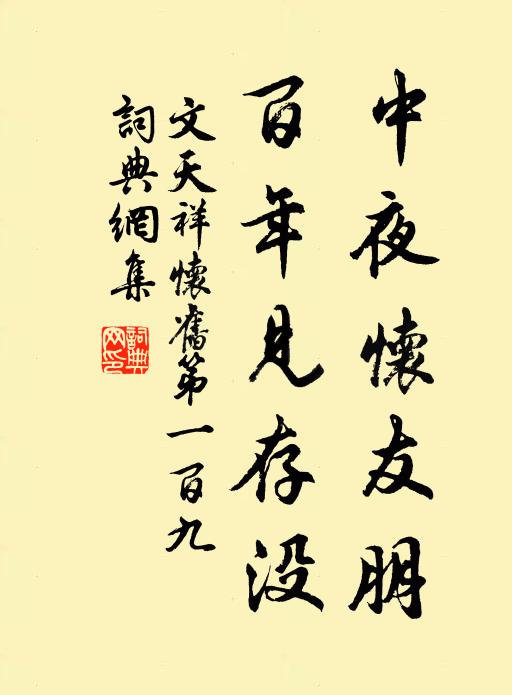 中夜懷友朋
百年見存没
文天祥懷舊第一百九
詞典網集
詞典網印